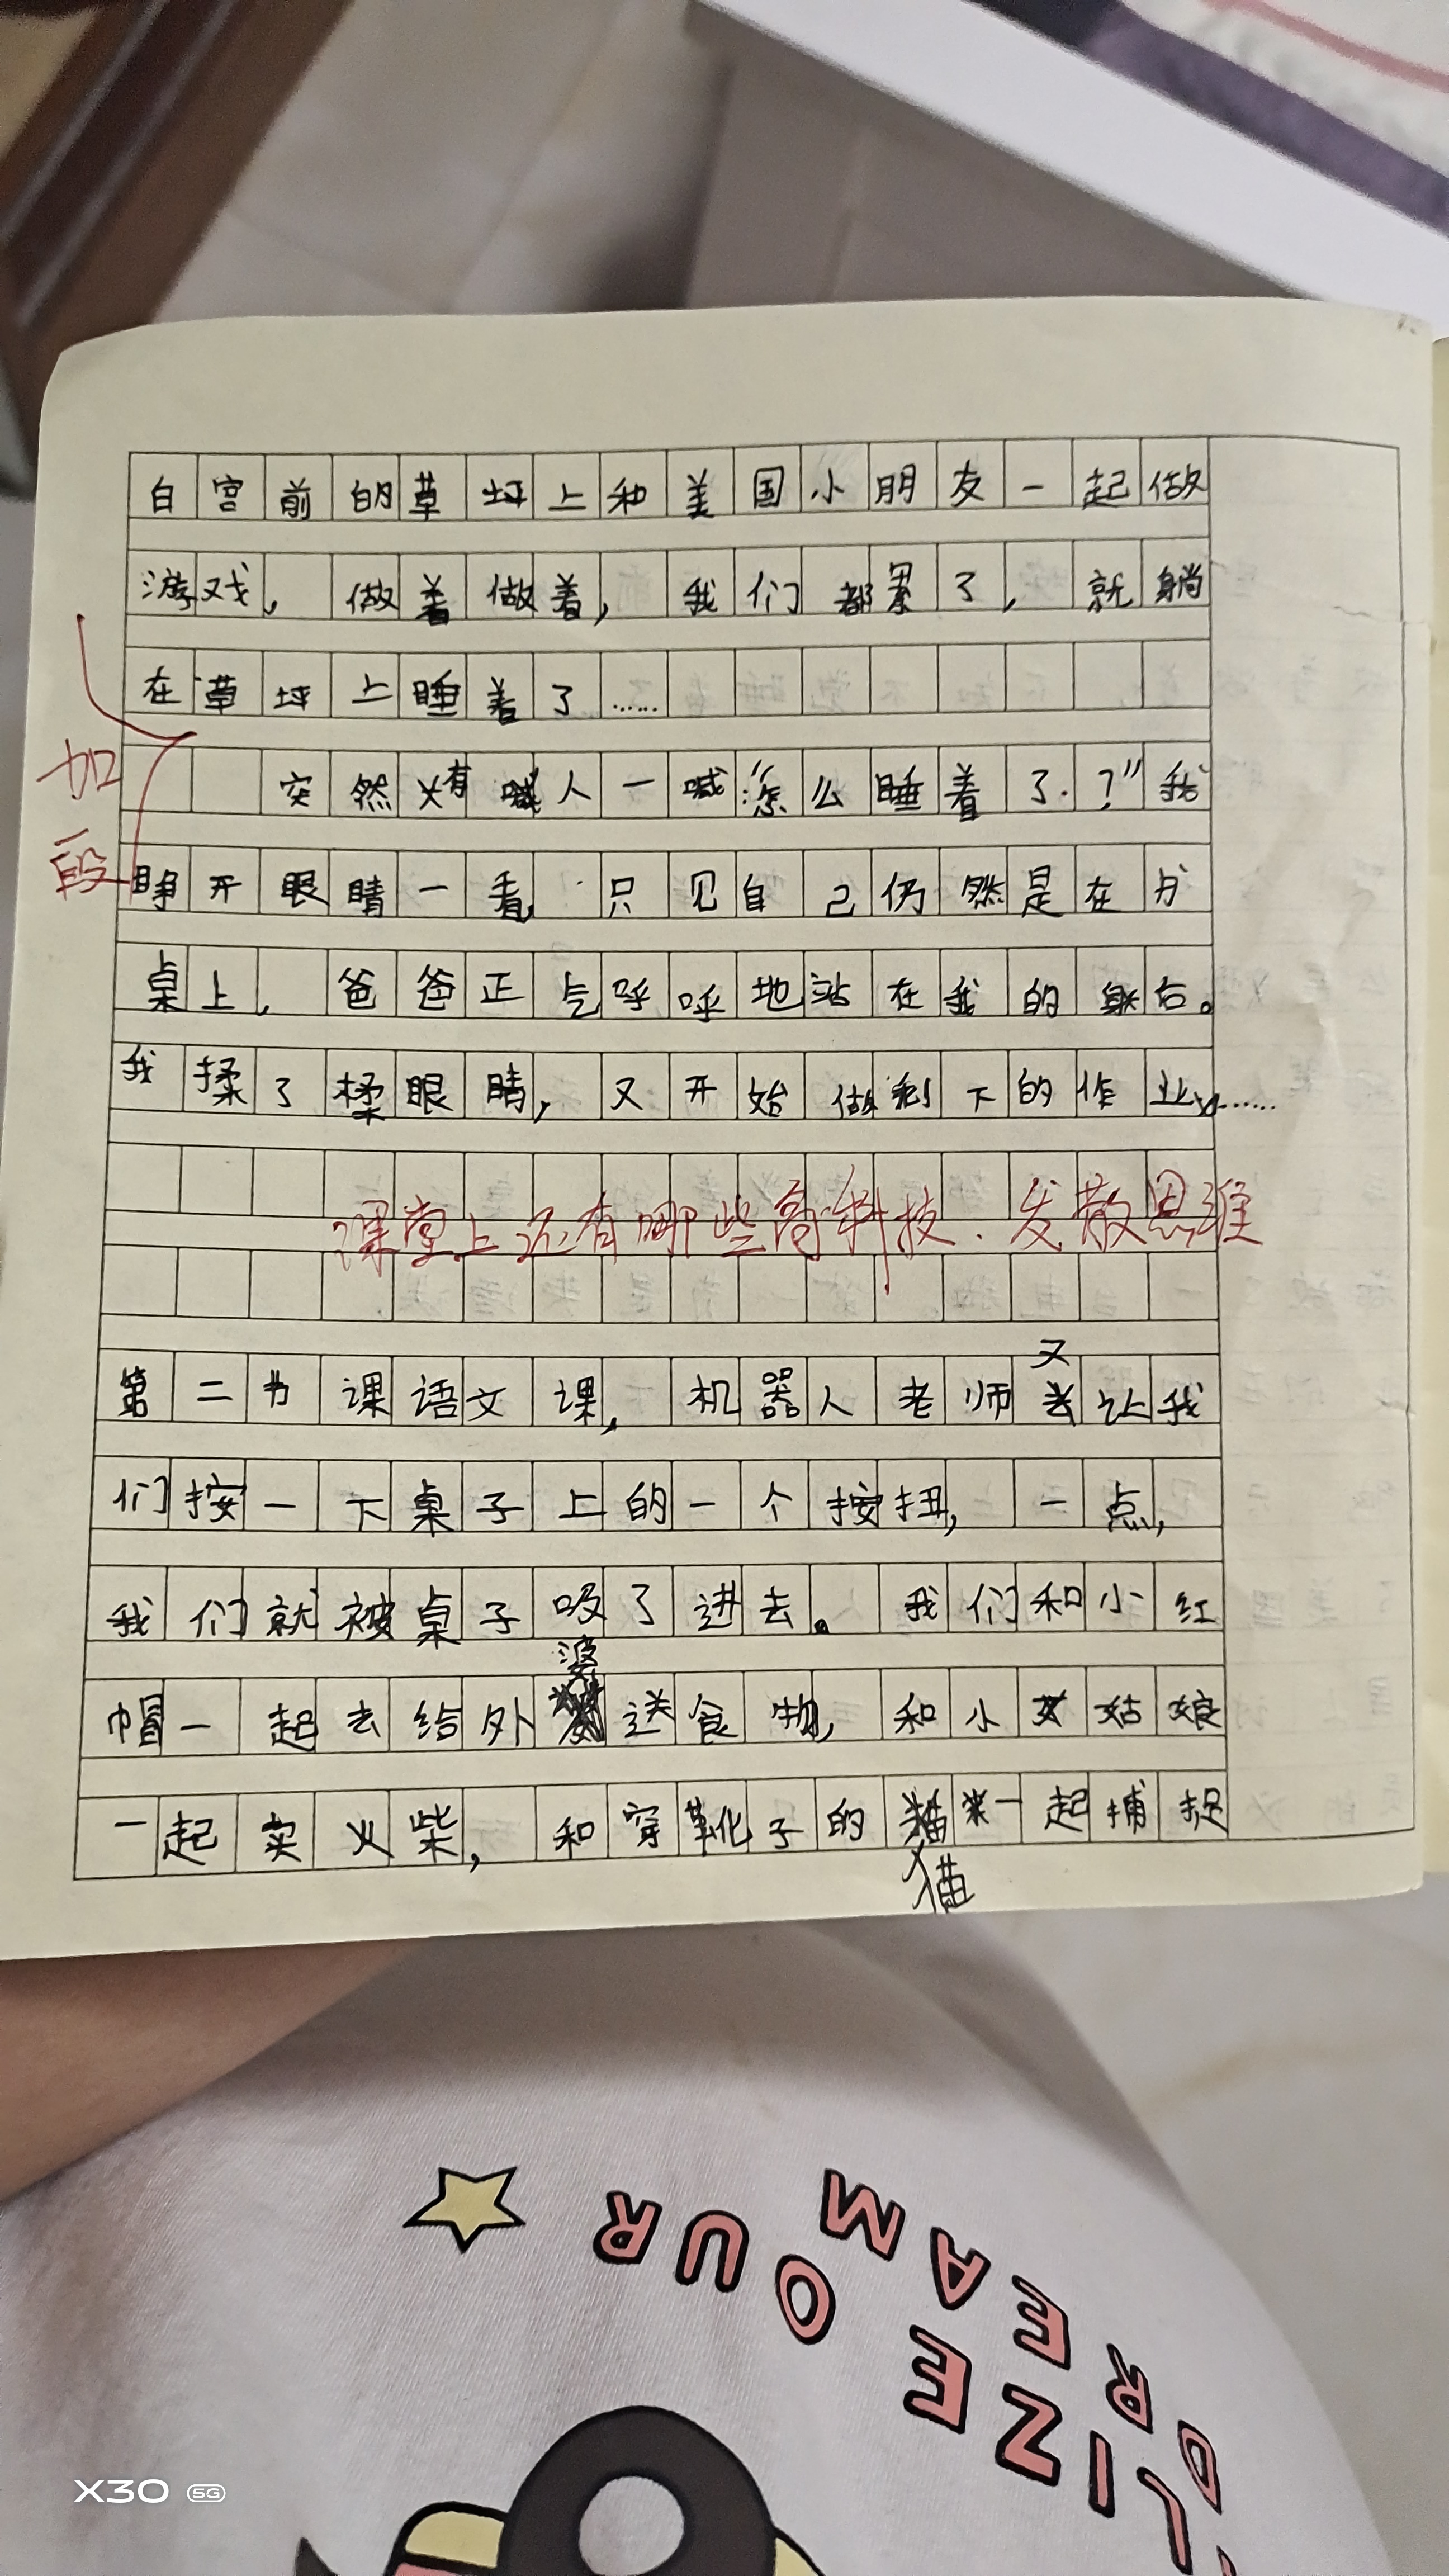 白宫前的草坪上和美国小朋友一起做
游戏,做着做着,我们都累了,就躺
在草坪上睡着了……
加
突然有人一喊:“怎么睡着了?”我
段
睁开眼睛一看,只见自己仍然是在书
桌上,爸爸正气呼呼地站在我的身后。
我揉了揉眼睛,又开始做剩下的作业……
课堂上还有哪些高科技、发散思维
又
第二节课语文课,机器人老师让我
们按一下桌子上的一个按扭,一点,
我们就被桌子吸了进去。我们和小红
婆
帽一起去给外送食物,和小女姑娘
一起卖火柴,和穿靴子的猫一起捕捉
猫
OUR
DREAM
X30 5G